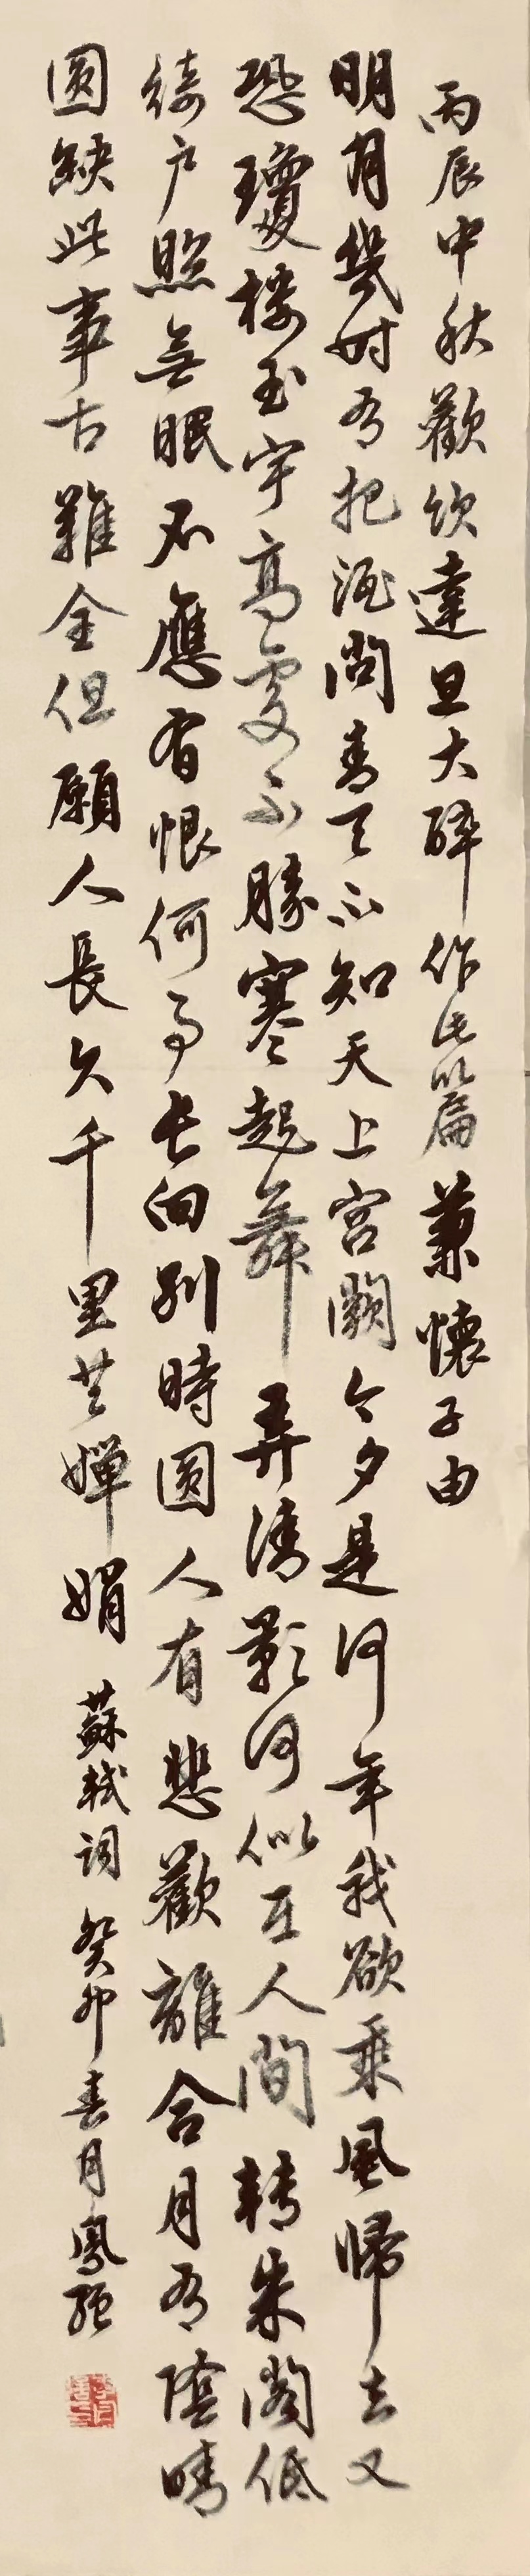 丙辰中秋歡飲達旦大醉作此篇兼懷子由
明月幾時有把酒問青天不知天上宮闕今夕是何年我欲乘風歸去又
恐瓊樓玉宇高處不勝寒起舞弄清影何似在人間轉朱閣低
綺户照無眠不應有恨何事長向別時圆人有悲歡離合月有陰晴
圆缺此事古難全但願人長久千里共嬋娟
蘇軾词癸卯春月鳳強